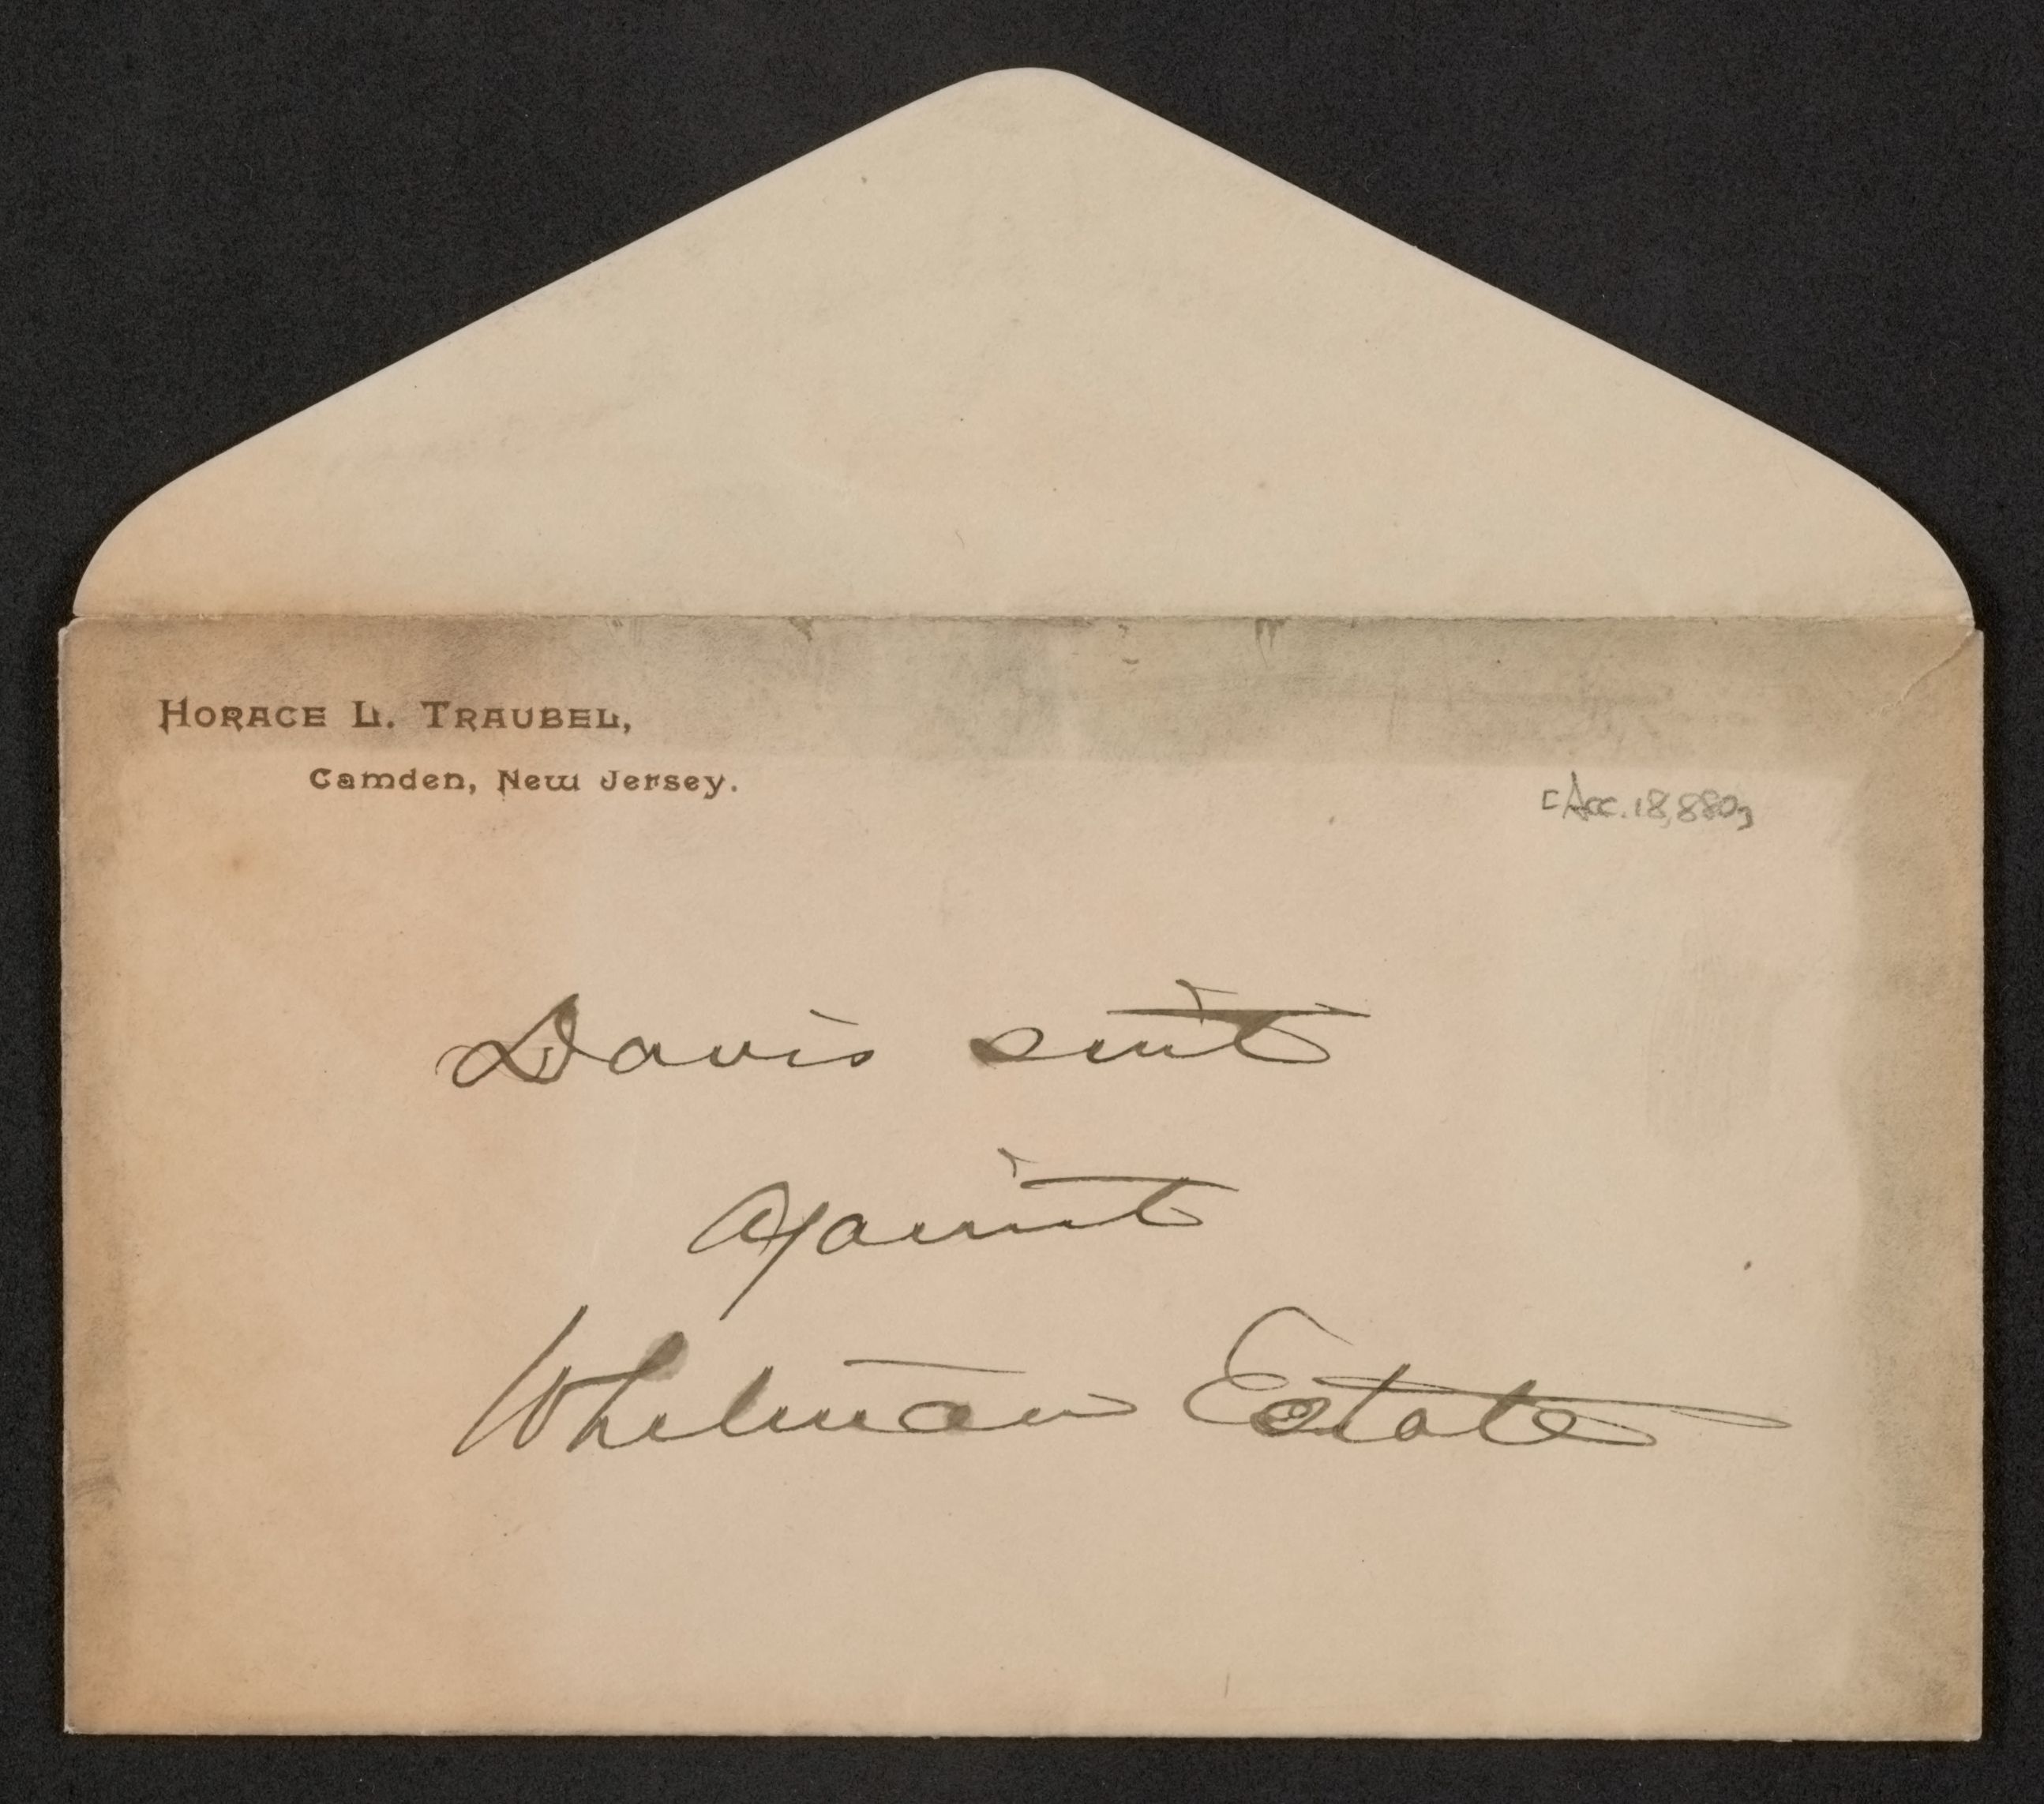 HORACE L. TRAUBEL,
Camden, New Jersey.
[Acc. 18,880]
Davis suit
against
Whitman Estate